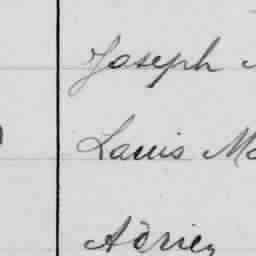 Joseph
Louis
Adrien